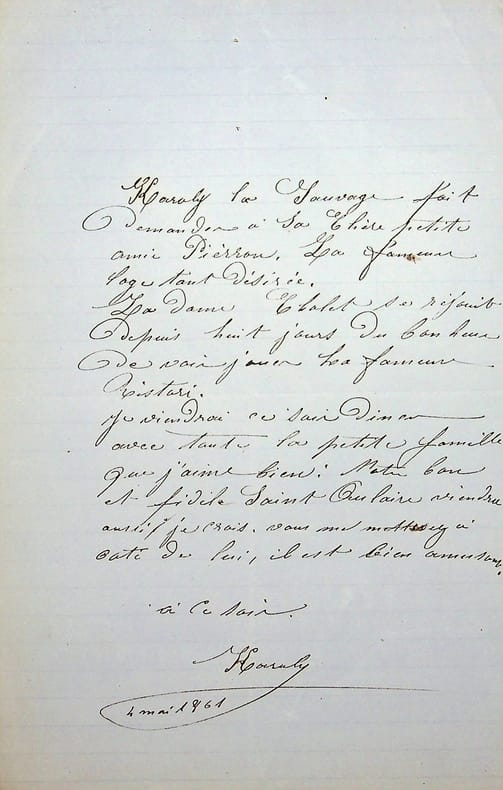 Karoly la Sauvage fait
Demander à Sa Chère petite
amie Pierron. La fameuse
loge tant désirée.
La dame Cholet se réjouit
depuis huit jours du bonheur
de voir jouer La fameuse
Ristori.
je viendrai ce soir Diner
avec toute la petite famille
que j'aime bien! Notre bon
et fidèle Saint Aulaire viendra
aussi, je crois. vous me mettrez à
coté de lui, il est bien amusant.
à Ce soir.
Karoly
4 mai 1861